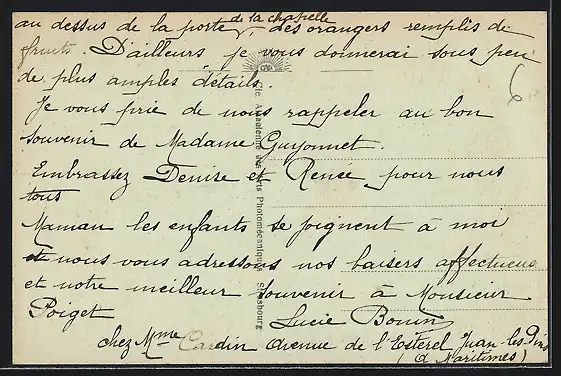 au dessus de la porte de la chapelle, des orangers remplis de
fruits. D'ailleurs je vous donnerai sous peu
de plus amples détails.
Je vous prie de nous rappeler au bon
souvenir de Madame Guyonnet.
Embrassez Denise et Renée pour nous
tous
Maman les enfants se joignent à moi
et nous vous adressons nos baisers affectueux
et notre meilleur souvenir à Monsieur
Poiget
Lucie Bonin
chez Mme Cardin Avenue de l'Esterel Juan-les-Pins
(A Maritimes)
Cie Alsacienne des Arts Photomécaniques Strasbourg